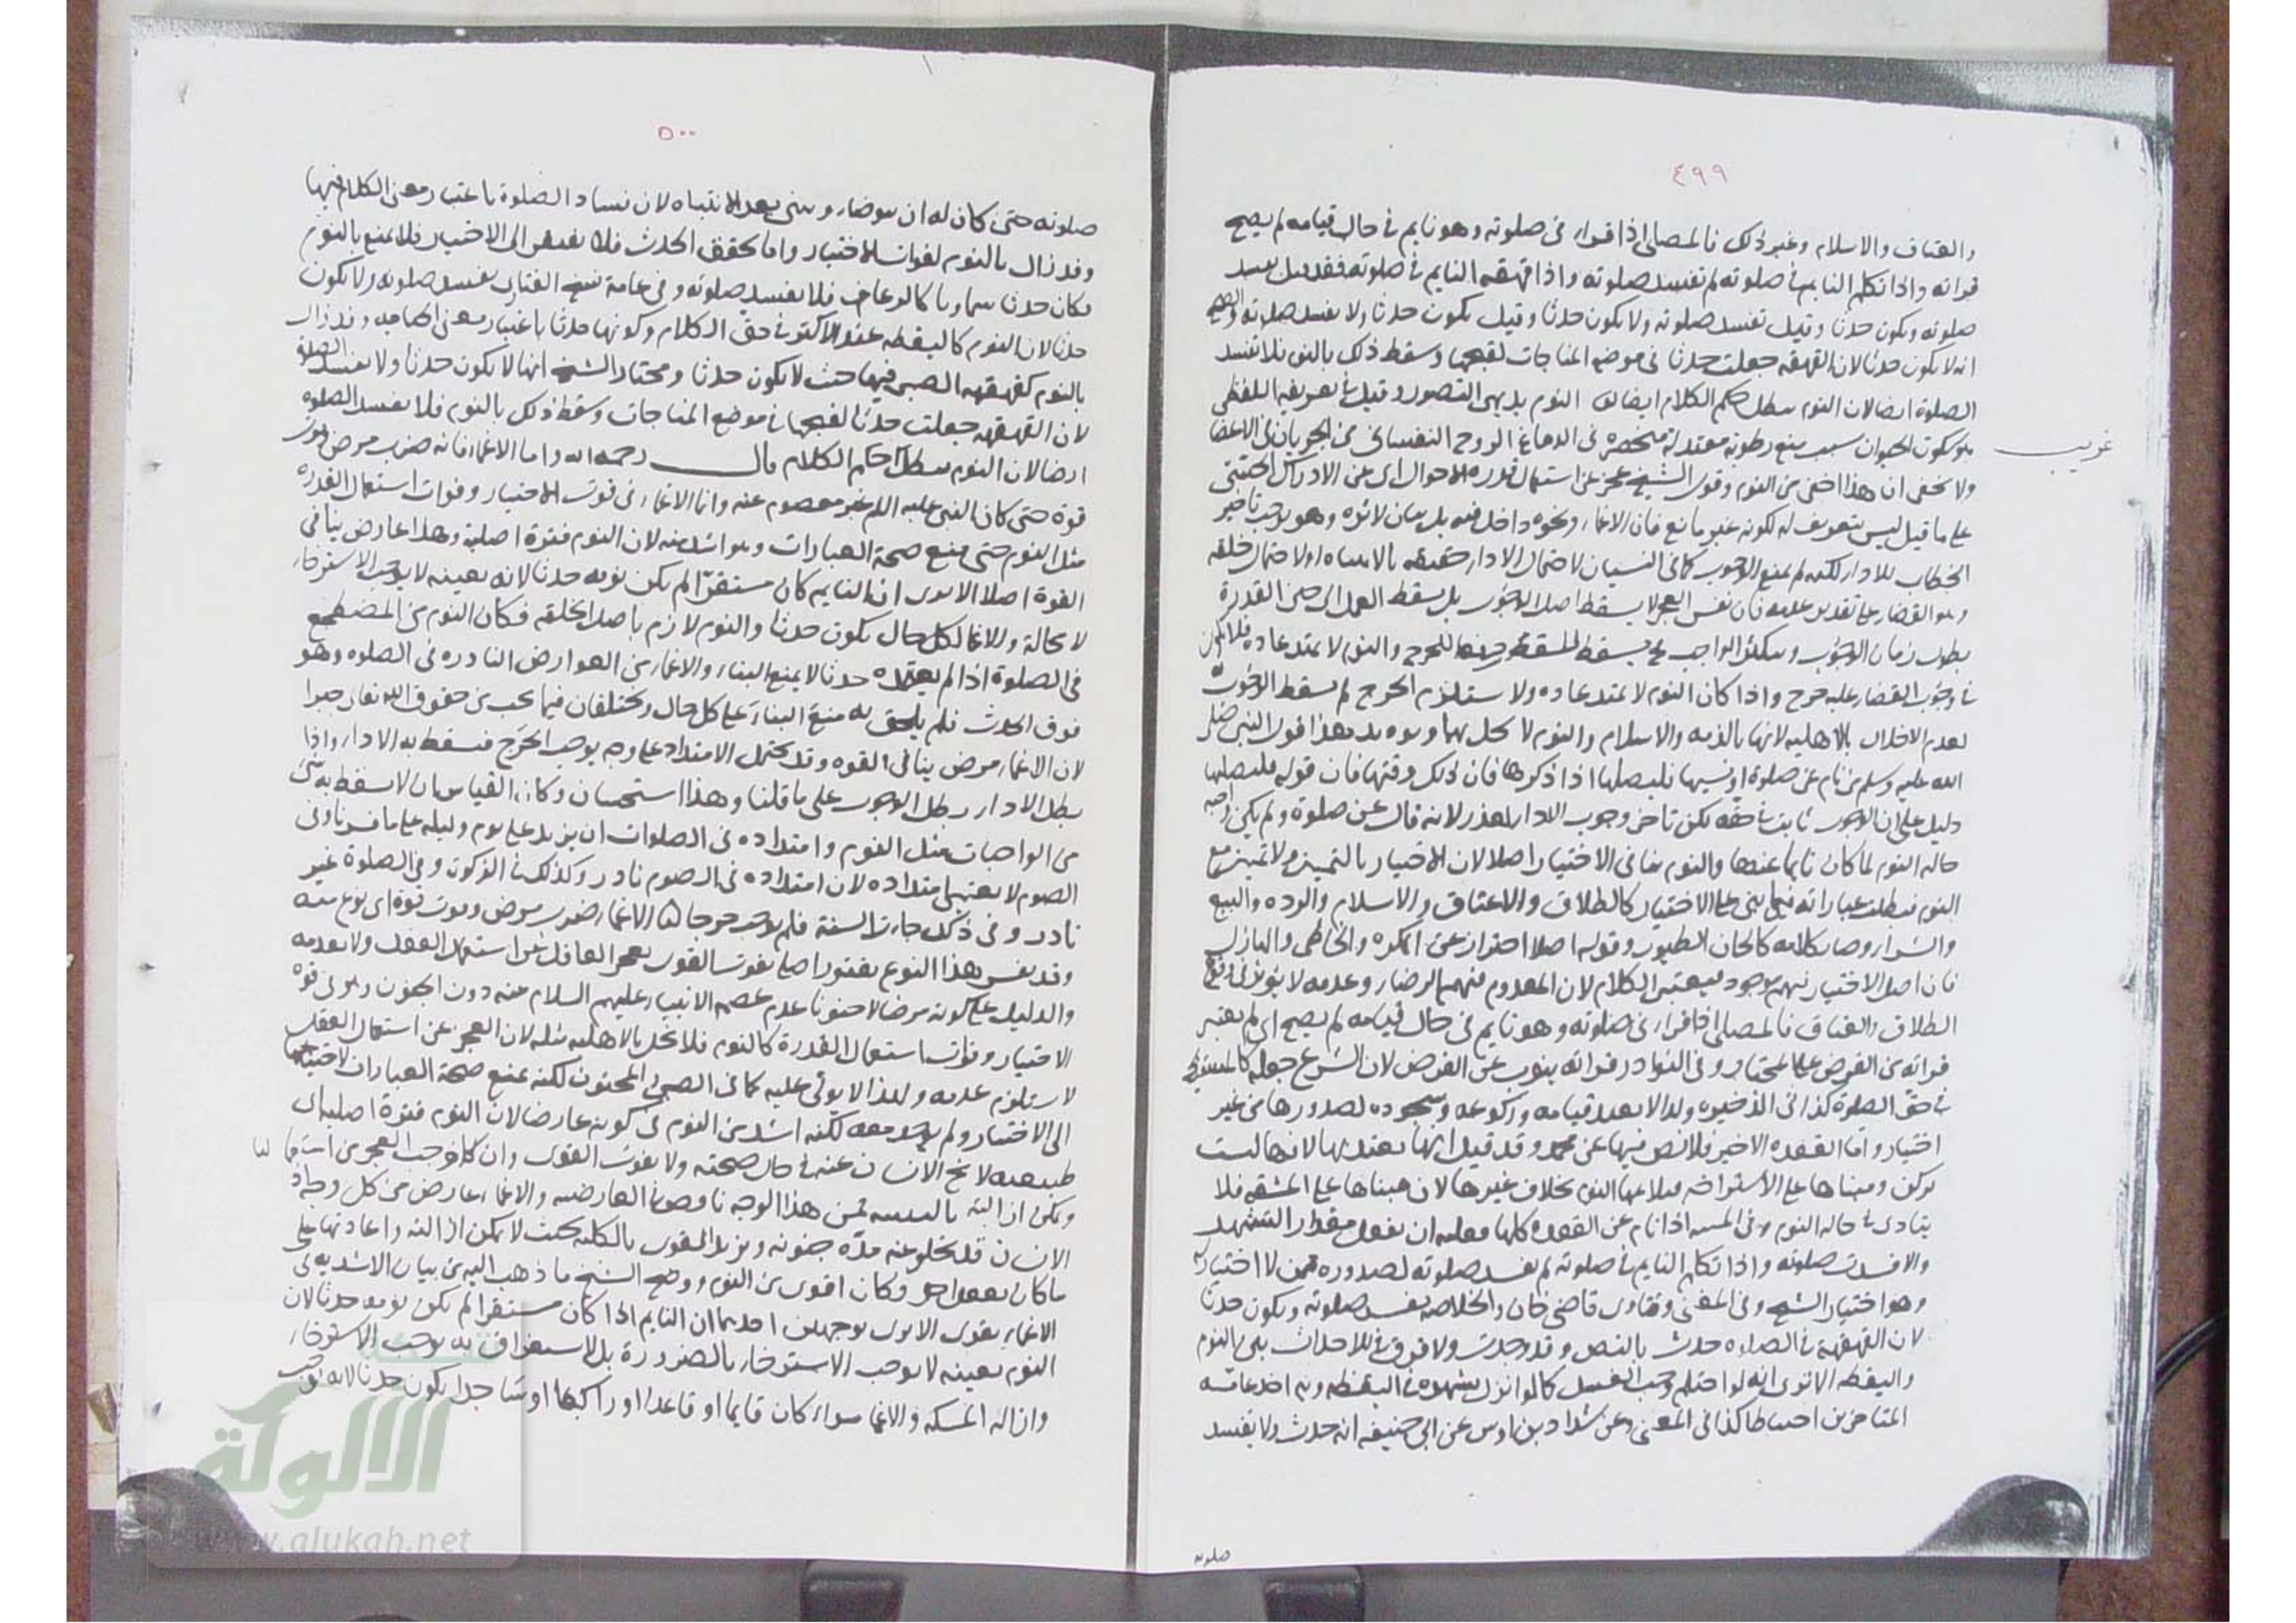 ٤٩٩
والعتاق والاسلام وغير ذلك فالمصلى اذا قرأ فى صلوته وهو نايم فى حال قيامه لم يصح
قراته واذا تكلم النايم فى صلوته لم تفسد صلوته واذا قهقه النايم فى صلوته فقد قيل تفسد
صلوته ويكون حدثا وقيل تفسد صلوته ولا يكون حدثا وقيل يكون حدثا ولا تفسد صلوته والصحيح
انه لا يكون حدثا لان القهقهه جعلت حدثا فى موضع المناجات لقبحها وسقط ذلك بالنوم فلا تفسد
الصلوة ايضا لان النوم يبطل حكم الكلام ايضا النوم بديهى التصور وقيل فى تعريفه اللفظى
هو سكون الحيوان بسبب منع رطوبة معتدلة منحصره فى الدماغ الروح النفسانى من الجريان فى الاعضا
غريب
ولا يخفى ان هذا اخفى من النوم وقول الشيخ عجز عن استعمال قدرة الاحوال اى عن الادراك الحقيقى
على ما قيل ليس بتعريف له لكونه غير مانع فان الاغماء ونحوه داخل فيه بل بيان لاثره وهو يوجب تاخير
الخطاب للاداء لكنه لم يمنع الوجوب كما فى النسيان لاحتمال الاداء حقيقه بالانتباه او لاحتمال خلفه
وهو القضاء على تقدير عدمه فان نفس العجز لا يسقط اصل الوجوب بل يسقط العمل الى حين القدرة
بطول زمان الوجوب الواجب يسقط للحرج والنوم لا يمتد عاده فلا يكون
فى وجوب القضاء عليه حرج واذا كان النوم لا يمتد عاده ولا يستلزم الحرج لم يسقط الوجوب
لعدم الاخلال بالاهليه لانها بالذمه والاسلام والنوم لا يخل بهما ويويد هذا قول النبى صلى
الله عليه وسلم من نام عن صلوة او نسيها فليصلها اذا ذكرها فان ذلك وقتها فان قوله فليصلها
دليل على ان الوجوب ثابت فى حقه لكن تاخر وجوب الاداء للعذر لانه قال عن صلوة ولم يكن واجبه
حالة النوم لما كان نايما عنها والنوم ينافى الاختيار اصلا لان الاختيار بالتمييز ولا تمييز مع
النوم فبطلت عباراته فيما يبنى على الاختيار كالطلاق والاعتاق والاسلام والرده والبيع
والشراء وصار كلامه كالحان الطيور وقوله اصلا احتراز عن المكره والخاطى والهازل
فان اصل الاختيار فيهم موجود فيعتبر الكلام لان المعدوم فيهم الرضا وعدمه لا يوثر فى وقوع
الطلاق والعتاق فالمصلى اذا قرأ فى صلوته وهو نايم فى حال قيامه لم يصح اى لم يعتبر
قراته من الفرض على المختار وفى النوادر قراته ينوب عن الفرض لان الشرع جعله كالمستيقظ
فى حق الصلوة كذا فى الذخيره ولذا لا يعتد قيامه وركوعه وسجوده لصدورها من غير
اختيار واما القعده الاخيره فلا نص فيها عن محمد وقد قيل انها يعتد بها لانها ليست
بركن ومبناها على الاستراحه فيلايمها النوم بخلاف غيرها لان مبناها على المشقه فلا
يتادى فى حالة النوم وفى المنيه اذا نام عن القعده كلها فعليه ان يقعد مقدار التشهد
والا فسدت صلوته واذا تكلم النايم فى صلوته لم تفسد صلوته لصدوره ممن لا اختيار له
وهو اختيار الشيخ وفى المغنى وفتاوى قاضى خان والخلاصه تفسد صلوته ويكون حدثا
لان القهقهة فى الصلوه حدث بالنص وقد وجدت ولا فرق فى الاحداث بين النوم
واليقظه الا ترى انه لو احتلم وجب الغسل كما لو انزل بشهوه فى اليقظه وبه اخذ عامة
المتاخرين احتياطا كذا فى المغنى وعن شداد بن اوس عن ابى حنيفه انه حدث ولا يفسد
صلوته
٥٠٠
صلوته حتى كان له ان يتوضا ويبنى بعد الانتباه لان فساد الصلوة باعتبار معنى الكلام فيها
وقد زال بالنوم لفوات الاختيار واما تحقق الحدث فلا يفتقر الى الاختيار فلا يمنع بالنوم
فكان حدثا سماويا كالرعاف فلا يفسد صلوته وفى عامة نسخ الفتاوى تفسد صلوته ولا يكون
حدثا لان النوم كاليقظه عند الاكثر فى حق الكلام وكونها حدثا باعتبار معنى الجنايه وقد زال
بالنوم كقهقهه الصبى فيها حيث لا يكون حدثا ومختار الشيخ انها لا يكون حدثا ولا تفسد الصلوة
لان القهقهه جعلت حدثا لقبحها فى موضع المناجات وسقط ذلك بالنوم فلا تفسد الصلوه
ايضا لان النوم يبطل احكام الكلام قال رحمه الله واما الاغماء فانه ضرب مرض وفوت
قوة حتى كان النبى عليه السلام غير معصوم عنه وانما الاغماء فى فوت الاختيار وفوات استعمال القدره
مثل النوم حتى يمنع صحة العبارات وهو اشد منه لان النوم فترة اصلية وهذا عارض ينافى
القوة اصلا الا يرى ان النايم كان مستقرا لم يكن نومه حدثا لانه بعينه لا يوجب الاسترخاء
لا محالة والاغما لكل حال يكون حدثا والنوم لازم باصل الخلقه فكان النوم من المضطجع
فى الصلوة اذا لم يتعمده حدثا لا يمنع البناء والاغماء من العوارض النادره فى الصلوه وهو
فوق الحدث فلم يلحق به منع البناء على كل حال ويختلفان فيما يجب من حقوق الله تعالى جبرا
لان الاغماء مرض ينافى القوه وقد يحتمل الامتداد على وجه يوجب الحرج فسقط به الاداء واذا
بطل الاداء بطل الوجوب على ما قلنا وهذا استحسان وكان القياس ان لا يسقط به شئ
من الواجبات مثل النوم وامتداده فى الصلوات ان يزيد على يوم وليله على ما فسرنا وفى
الصوم لا يعتبر امتداده لان امتداده فى الصوم نادر وكذلك فى الزكوة وفى الصلوة غير
نادر وفى ذلك جاءت السنة فلم يوجب حرجا الاغماء ضرب مرض وفوت قوة اى نوع منه
وقد يفسر هذا النوع بفتور اصلى بفوت القوى يعجز العاقل عن استعمال العقل ولا يعدمه
والدليل على كونه مرضا لا جنونا عدم عصمة الانبياء عليهم السلام عنه دون الجنون وهو فى فوت
الاختيار وفوات استعمال القدرة كالنوم فلا يخل بالاهليه مثله لان العجز عن استعمال العقل
لا يستلزم عدمه ولهذا لا يولى عليه كما فى الصبى والمجنون لكنه يمنع صحة العبارات لاحتياجها
الى الاختيار ولم يوجد معه لكنه اشد من النوم فى كونه عارضا لان النوم فترة اصلية اى
طبيعيه لا يخ الانسان عنه فى حال صحته ولا يفوت القوى وان كان وجب العجز عن استعمالها
ويمكن ازالته بالتنبيه فمن هذا الوجه ناقص فى العارضيه والاغماء عارض من كل وجه اذ
الانسان قد يخلو عنه مدة حيوته ويزيل القوى بالكليه بحيث لا يمكن ازالته واعادتها على
ما كان بفعل احد وكان اقوى من النوم ووضح الشيخ ما ذهب اليه من بيان الاشديه فى
الاغماء بقوله الا يرى بوجهين احدهما ان النايم اذا كان مستقرا لم يكن نومه حدثا لان
النوم بعينه لا يوجب الاسترخاء بالضرورة بل الاستغراق به يوجب الاسترخاء
وازالة المسكه والاغما سواء كان قايما او قاعدا او راكعا او ساجدا يكون حدثا لانه يوجب
الألوكة
www.alukah.net